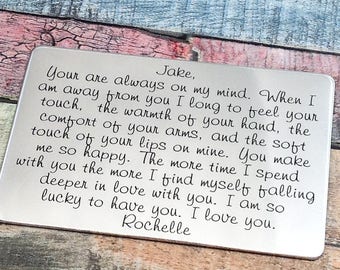 Jake,
Your are always on my mind. When I
am away from you I long to feel your
touch, the warmth of your hand, the
comfort of your arms, and the soft
touch of your lips on mine. You make
me so happy. The more time I spend
with you the more I find myself falling
deeper in love with you. I am so
lucky to have you. I love you.
Rochelle